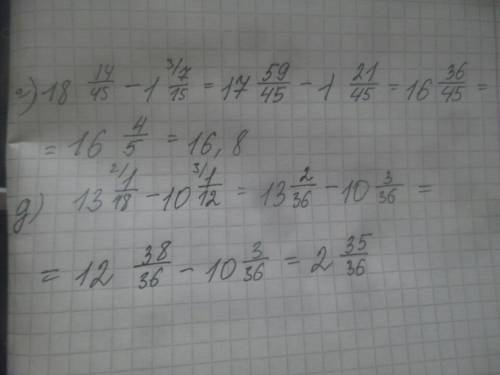 г) 18 14/45 − 1 ³⁄7/15 = 17 59/45 − 1 21/45 = 16 36/45 =
= 16 4/5 = 16,8
д) 13 ²⁄1/18 − 10 ³⁄1/12 = 13 2/36 − 10 3/36 =
= 12 38/36 − 10 3/36 = 2 35/36